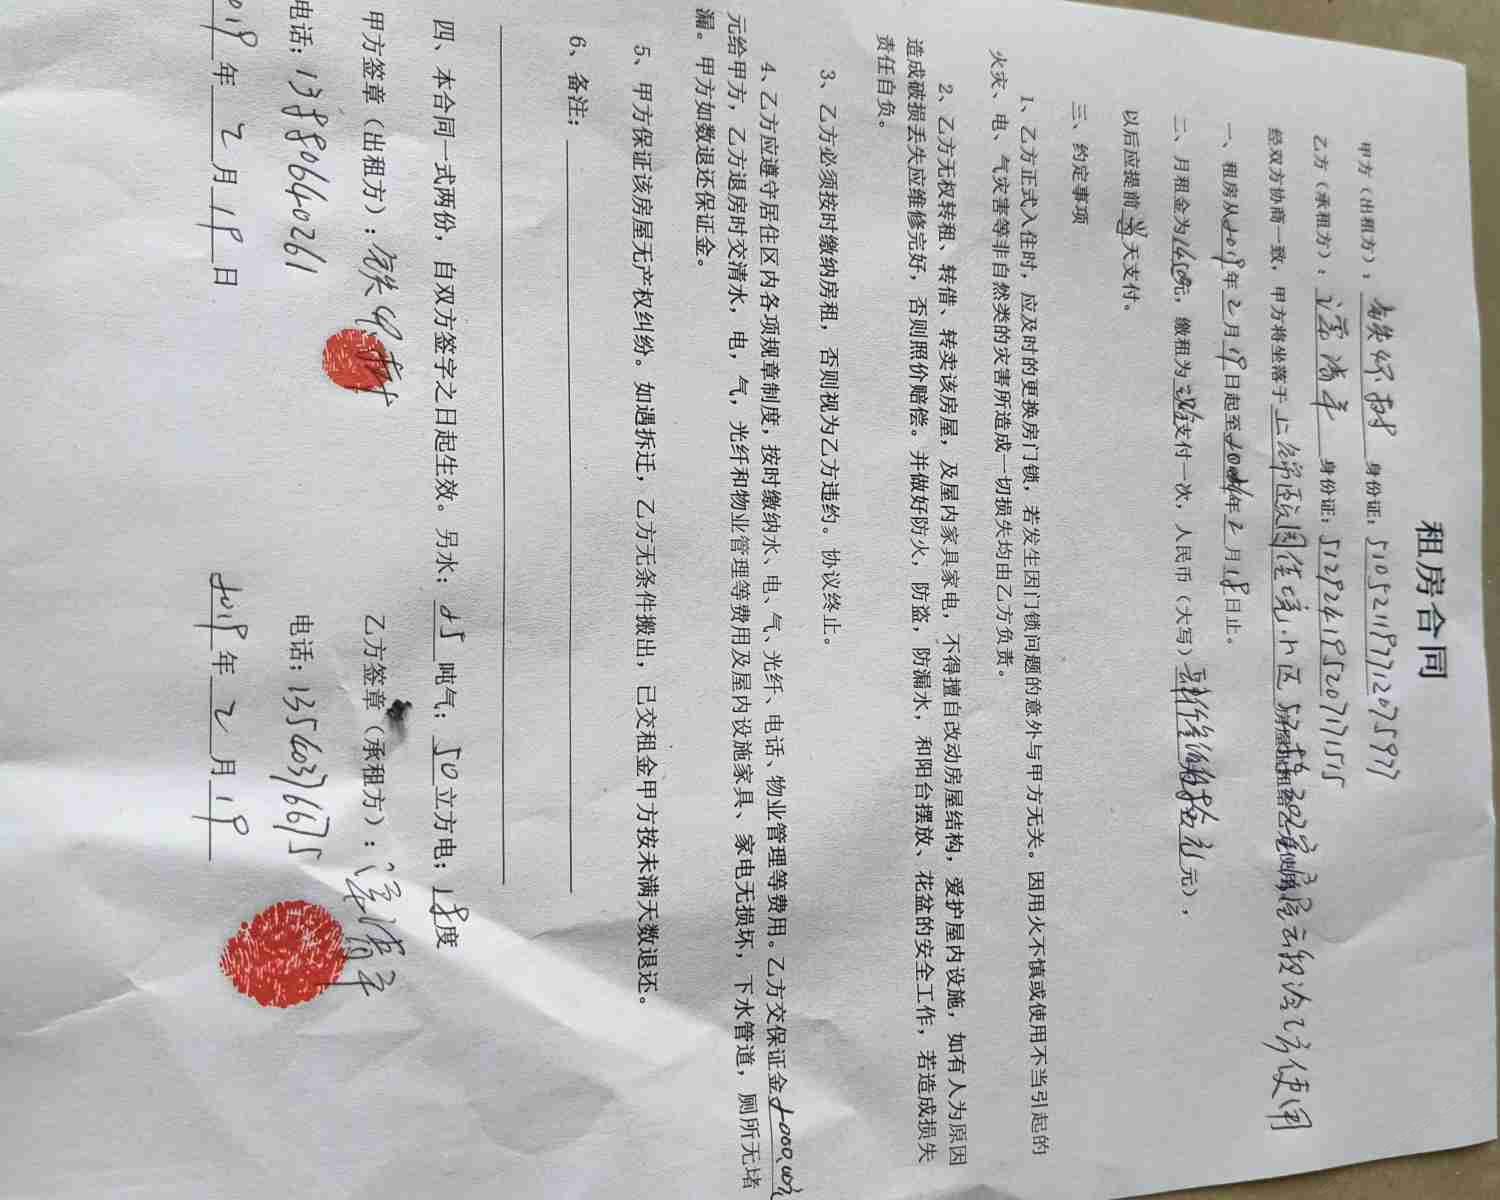 租房合同
甲方（出租方）： 身份证：510521197712075977
乙方（承租方）： 清平 身份证：512924195207171515
经双方协商一致，甲方将坐落于 住境小区 使用
一、租房从2019年2月19日起至 年2月18日止。
二、月租金为1650元，缴租为 支付一次，人民币（大写） 元），
以后应提前 天支付。
三、约定事项
1、乙方正式入住时，应及时的更换房门锁，若发生因门锁问题的意外与甲方无关。因用火不慎或使用不当引起的
火灾、电、气灾害等非自然类的灾害所造成一切损失均由乙方负责。
2、乙方无权转租、转借、转卖该房屋，及屋内家具家电，不得擅自改动房屋结构，爱护屋内设施，如有人为原因
造成破损丢失应维修完好，否则照价赔偿。并做好防火，防盗，防漏水，和阳台摆放、花盆的安全工作，若造成损失
责任自负。
3、乙方必须按时缴纳房租，否则视为乙方违约。协议终止。
4、乙方应遵守居住区内各项规章制度，按时缴纳水、电、气、光纤、电话、物业管理等费用。乙方交保证金2000.00
元给甲方，乙方退房时交清水，电，气，光纤和物业管理等费用及屋内设施家具、家电无损坏，下水管道，厕所无堵
漏。甲方如数退还保证金。
5、甲方保证该房屋无产权纠纷。如遇拆迁，乙方无条件搬出，已交租金甲方按未满天数退还。
6、备注：
四、本合同一式两份，自双方签字之日起生效。另水：25吨气：50立方电：18度
甲方签章（出租方）： 乙方签章（承租方）： 清平
电话：13880640261 电话：13540376675
2019年2月19日 2019年2月19